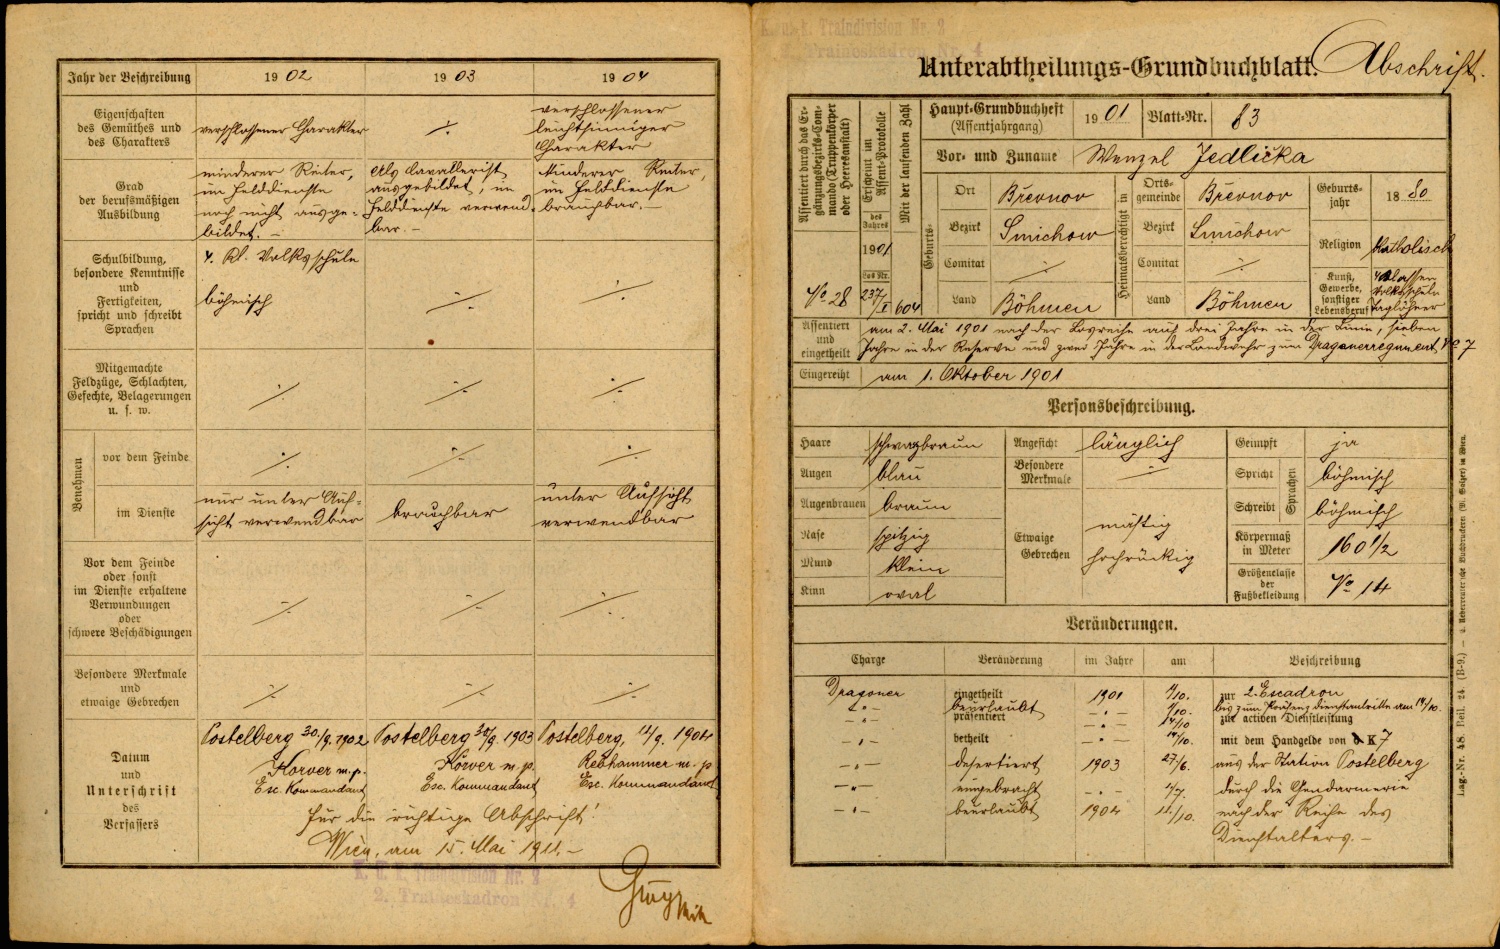 Jahr der Beschreibung
1902
1903
1904
Eigenschaften
des Gemüthes und
des Charakters
verschlossener Charakter
./.
verschlossener
leichtsinniger
Charakter
Grad
der berufsmäßigen
Ausbildung
minderer Reiter,
im Felddienste
noch nicht ausge-
bildet. –
Als Cavallerist
ausgebildet, im
Felddienste verwend-
bar. –
Minderer Reiter,
im Felddienste
brauchbar. –
Schulbildung,
besondere Kenntnisse
und
Fertigkeiten,
spricht und schreibt
Sprachen
4. Kl. Volksschule
böhmisch
./.
./.
Mitgemachte
Feldzüge, Schlachten,
Gefechte, Belagerungen
u. s. w.
./.
./.
./.
Benehmen
vor dem Feinde
./.
./.
./.
im Dienste
nur unter Auf-
sicht verwendbar
brauchbar
unter Aufsicht
verwendbar
Vor dem Feinde
oder sonst
im Dienste erhaltene
Verwundungen
oder
schwere Beschädigungen
./.
./.
./.
Besondere Merkmale
und
etwaige Gebrechen
./.
./.
./.
Datum
und
Unterschrift
des
Verfassers
Postelberg 30./9. 1902
Korver m. p.
Esc. Kommandant
Postelberg 30/9. 1903
Korver m. p.
Esc. Kommandant
Postelberg, 14/9. 1904
Rebhammer m. p.
Esc. Kommandant
für die richtige Abschrift!
Wien, am 15. Mai 1911. –
K. u. k. Traindivision Nr. 2
2. Traineskadron Nr. 4
K. u. k. Traindivision Nr. 2
2. Traineskadron Nr. 4
Unterabtheilungs-Grundbuchblatt.
Abschrift.
Assentiert durch das Er-
gänzungsbezirks-Com-
mando (Truppenkörper
oder Heeresanstalt)
No 28
Erscheint im
Assent-Protokolle
des
Jahres
1901
Los Nr.
237/I
Mit der laufenden Zahl
604
Haupt-Grundbuchheft
(Assentjahrgang)
1901
Blatt-Nr.
83
Vor- und Zuname
Wenzel Jedlička
Geburts-
Ort
Břevnov
Bezirk
Smichow
Comitat
./.
Land
Böhmen
Heimatsberechtigt in
Orts-
gemeinde
Břevnov
Bezirk
Smichow
Comitat
./.
Land
Böhmen
Geburts-
jahr
1880
Religion
katholisch
Kunst,
Gewerbe,
sonstiger
Lebensberuf
4 Klassen
Volksschule
Taglöhner
Assentiert
und
eingetheilt
am 2. Mai 1901 nach der Losreihe auf drei Jahre in der Linie, sieben
Jahre in der Reserve und zwei Jahre in der Landwehr zum Dragonerregiment No 7
Eingereiht
am 1. Oktober 1901
Personsbeschreibung.
Haare
schwarzbraun
Augen
blau
Augenbrauen
braun
Nase
spitzig
Mund
klein
Kinn
oval
Angesicht
länglich
Besondere
Merkmale
./.
Etwaige
Gebrechen
mästig
hochrückig
Geimpft
ja
Spricht
Sprachen
böhmisch
Schreibt
böhmisch
Körpermaß
in Meter
160 1/2
Größenclasse
der
Fußbekleidung
No 14
Veränderungen.
Charge
Veränderung
im Jahre
am
Beschreibung
Dragoner
eingetheilt
1901
1/10.
zur 2. Escadron
beurlaubt
1/10.
bis zum Präsenzdienstantritte am 14/10.
präsentiert
14/10
zur activen Dienstleistung
betheilt
14/10.
mit dem Handgelde von K 7
desertiert
1903
27/6.
aus der Station Postelberg
eingebracht
1/7.
durch die Gendarmerie
beurlaubt
1904
11./10.
nach der Reihe des
Dienstalters. –
Lag.-Nr. 48. Beil. 24. (B-9.) — v. Ueberreuter'sche Buchdruckerei (M. Salzer) in Wien.